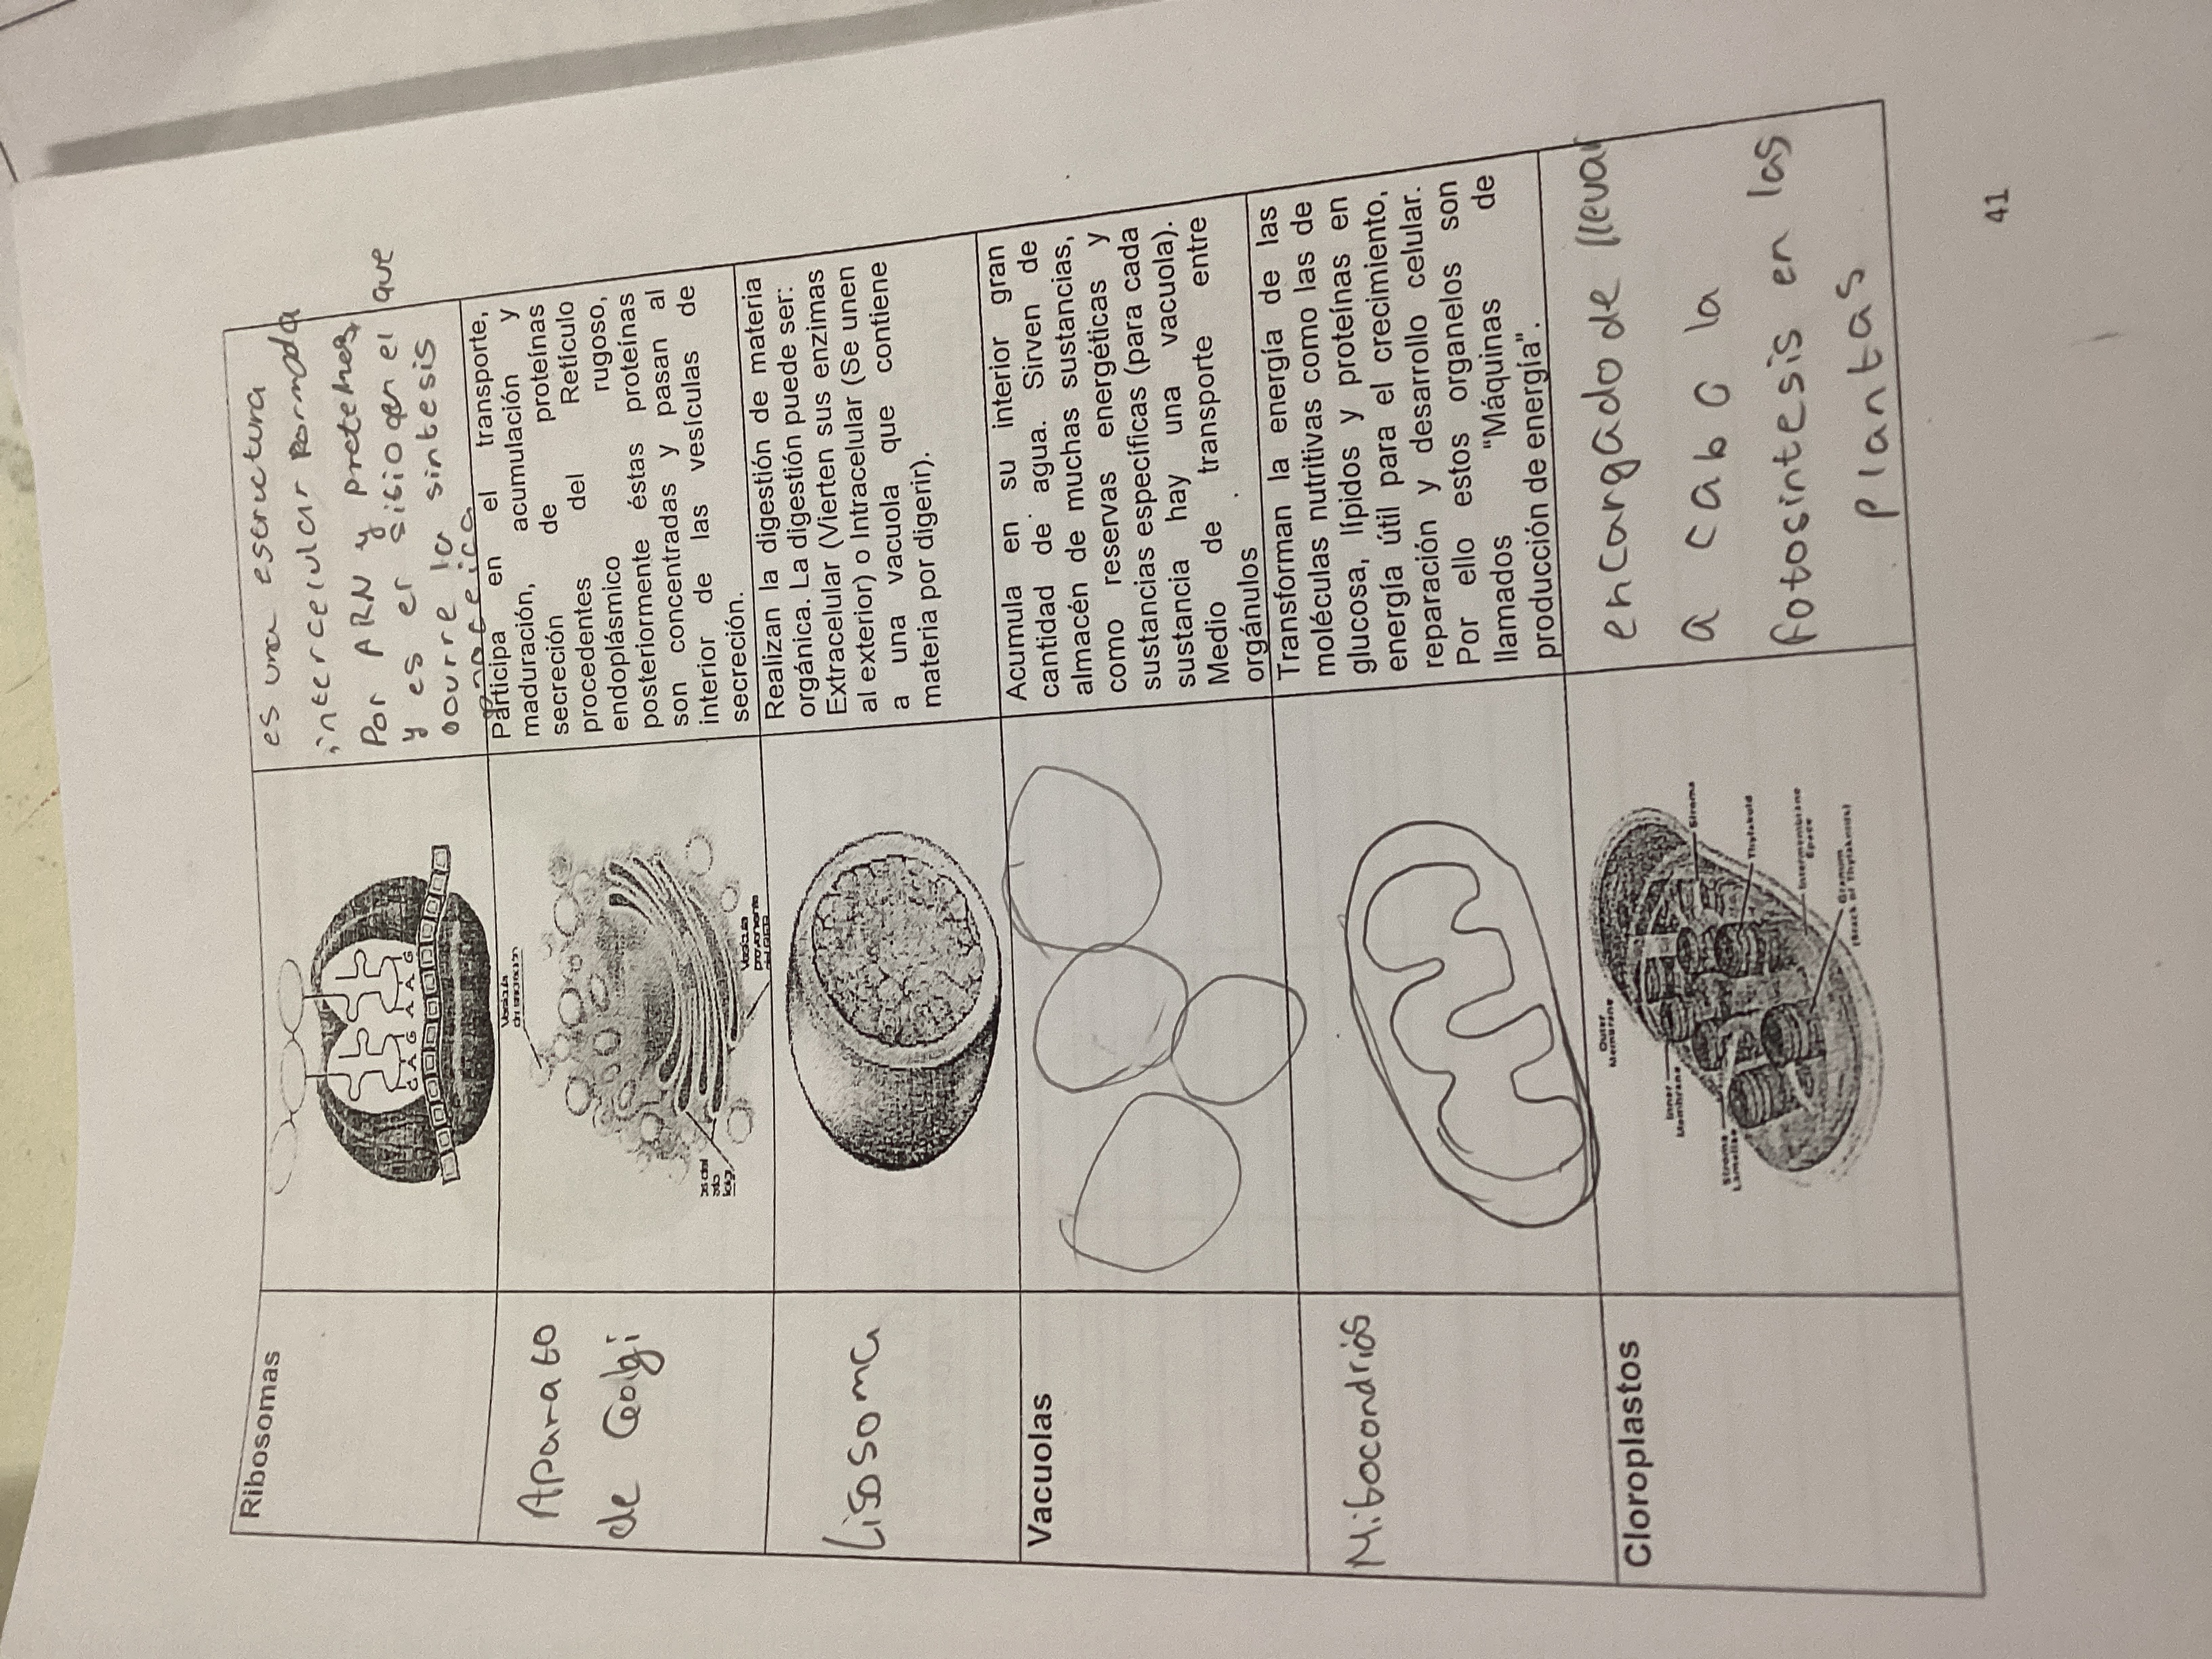 Ribosomas
es una estructura
intercelular formada
Por ARN y
y es er sisio en el que
ocurre la sintesis
Aparato
de Golgi
Vesícula
Participa en el transporte,
maduración, acumulación y
secreción de proteínas
procedentes del Retículo
endoplásmico rugoso,
posteriormente éstas proteínas
son concentradas y pasan al
interior de las vesículas de
secreción.
Lisosoma
Realizan la digestión de materia
orgánica. La digestión puede ser:
Extracelular (Vierten sus enzimas
al exterior) o Intracelular (Se unen
a una vacuola que contiene
materia por digerir).
Vacuolas
Acumula en su interior gran
cantidad de agua. Sirven de
almacén de muchas sustancias,
como reservas energéticas y
sustancias específicas (para cada
sustancia hay una vacuola).
Medio de transporte entre
orgánulos
Mitocondrias
Transforman la energía de las
moléculas nutritivas como las de
glucosa, lípidos y proteínas en
energía útil para el crecimiento,
reparación y desarrollo celular.
Por ello estos organelos son
llamados "Máquinas de
producción de energía".
Cloroplastos
Outer
Membrane
Inner
Membrane
Stroma
Lamellae
Stroma
Thylakoid
Intermembrane
Space
Granum
(Stack of Thylakoids)
encargado de llevar
a cabo la
fotosintesis en las
plantas
41